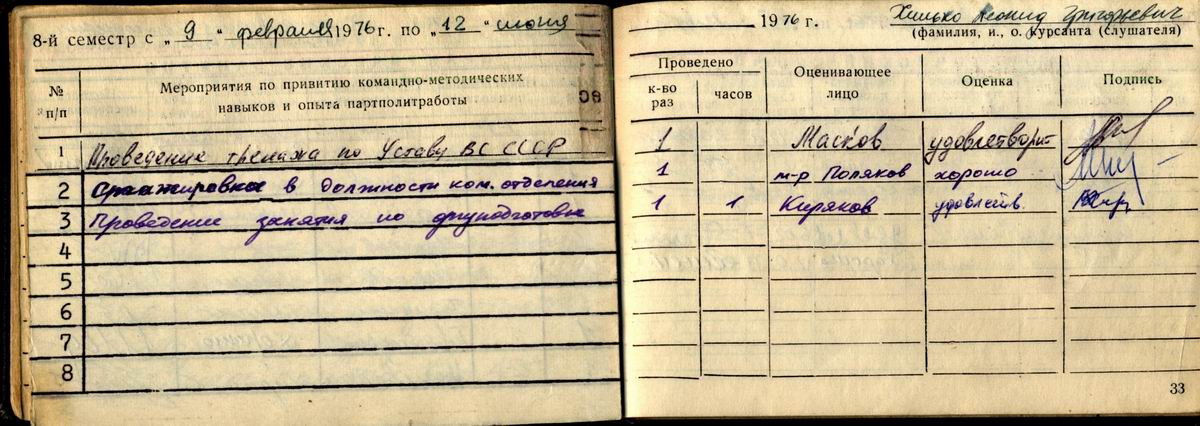 8-й семестр с „ 9 “ февраля 1976 г. по „ 12 “ июня
1976 г. Хилько Леонид Григорьевич
(фамилия, и., о. курсанта (слушателя)
№ п/п
Мероприятия по привитию командно-методических
навыков и опыта партполитработы
Проведено
к-во раз
часов
Оценивающее лицо
Оценка
Подпись
1 Проведение тренажа по Уставу ВС СССР 1 Маськов удовлетворит
2 Стажировка в должности ком. отделения 1 м-р Поляков хорошо
3 Проведение занятия по физподготовке 1 1 Киряков удовлетв.
4
5
6
7
8
33